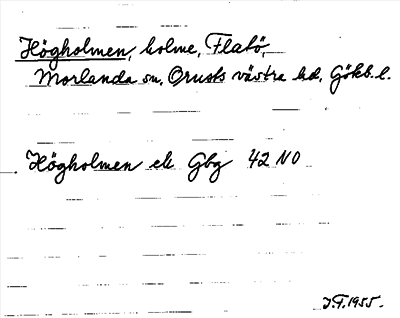 Högholmen, holme, Flatö,
Morlanda sn, Orusts västra hd, Göteb. l.
Högholmen ek Gbg 42 NO
J.F. 1955.